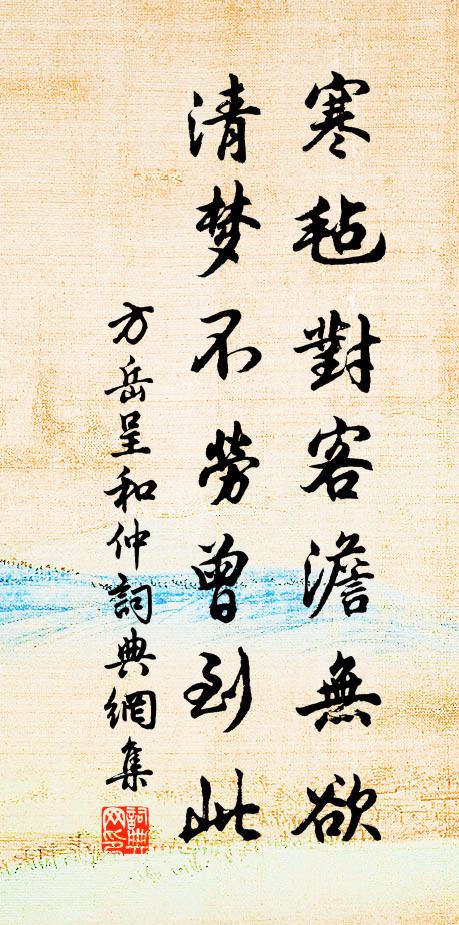 寒毡對客澹無欲
清梦不勞曾到此
方岳呈和仲詞典網集
詞典网印